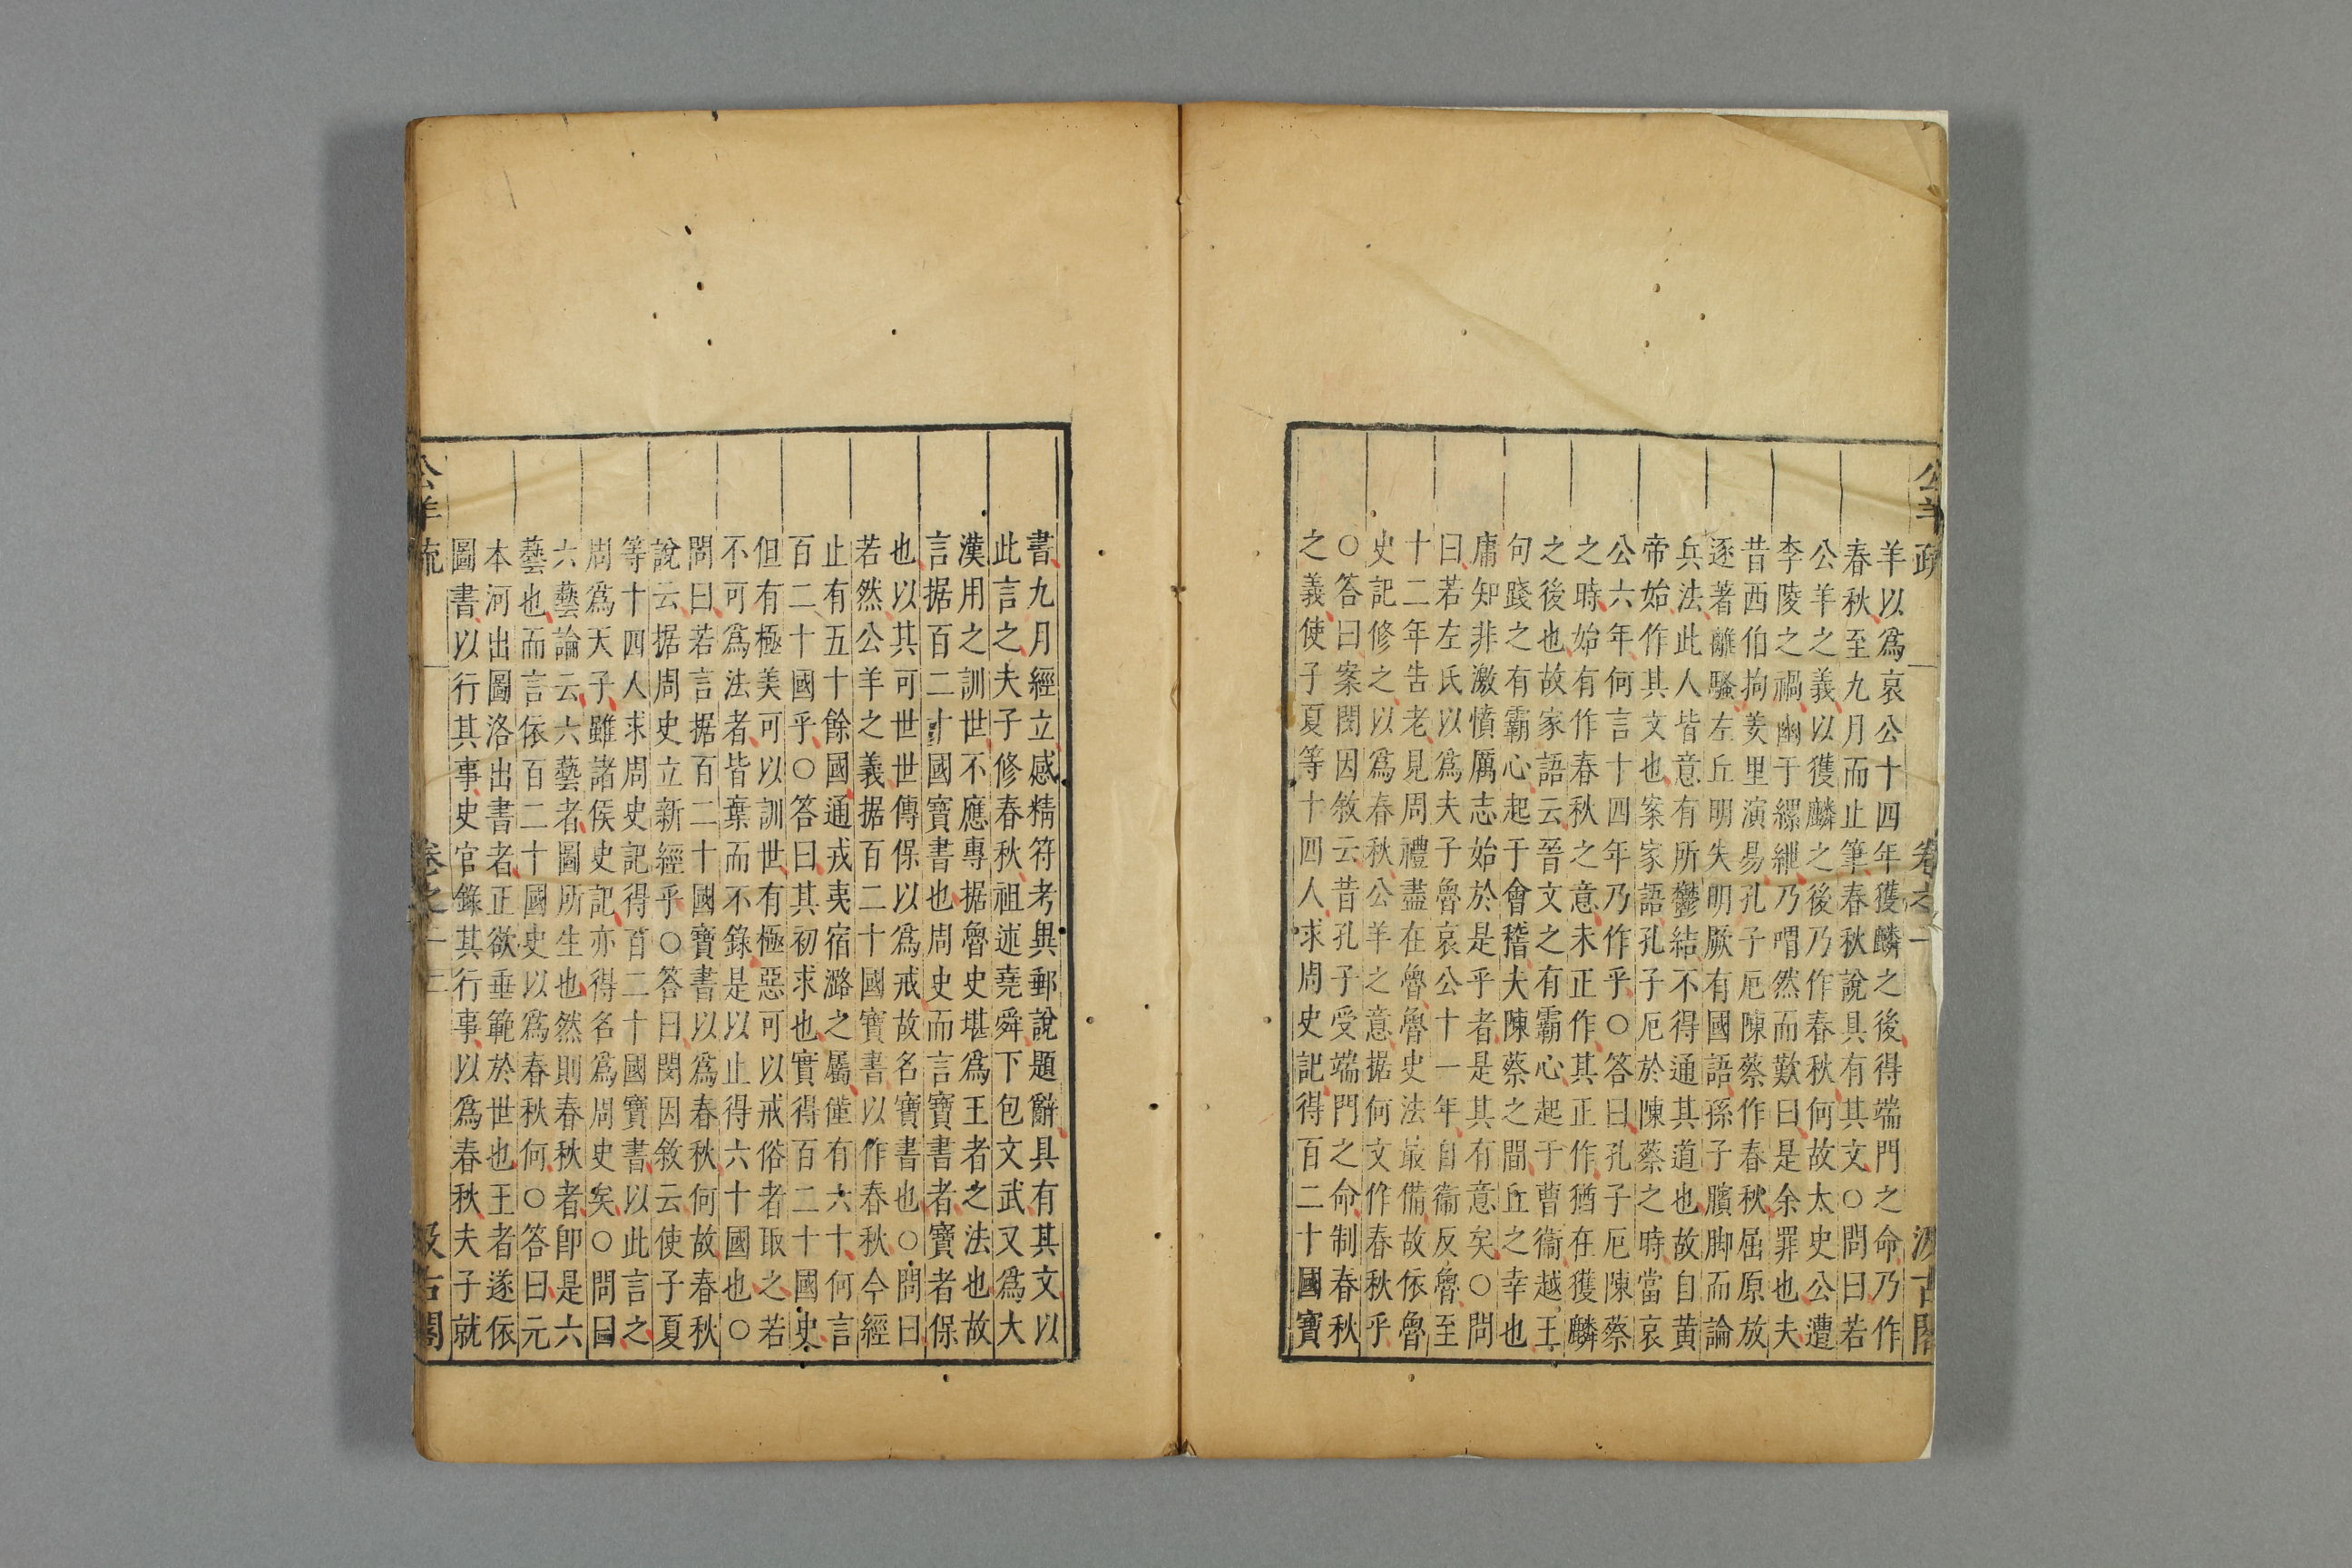 公羊疏 卷之一 汲古閣
羊以爲哀公十四年獲麟之後得端門之命乃作
春秋至九月而止筆春秋說具有其文○問曰若
公羊之義以獲麟之後乃作春秋何故太史公遭
李陵之禍幽于縲紲乃喟然而歎曰是余罪也夫
昔西伯拘羑里演易孔子厄陳蔡作春秋屈原放
逐著離騷左丘明失明厥有國語孫子臏脚而論
兵法此人皆意有所鬱結不得通其道也故自黃
帝始作其文也案家語孔子厄於陳蔡之時當哀
公六年何言十四年乃作乎○答曰孔子厄陳蔡
之時始有作春秋之意未正作其正作猶在獲麟
之後也故家語云晉文之有霸心起于曹衞越王
句踐之有霸心起于會稽夫陳蔡之間丘之幸也
庸知非激憤厲志始於是乎者是其有意矣○問
曰若左氏以爲夫子魯哀公十一年自衞反魯至
十二年告老見周禮盡在魯魯史法最備故依魯
史記修之以爲春秋公羊之意据何文作春秋乎
○答曰案閔因敘云昔孔子受端門之命制春秋
之義使子夏等十四人求周史記得百二十國寶
書九月經立感精符考異郵說題辭具有其文以
此言之夫子修春秋祖述堯舜下包文武又爲大
漢用之訓世不應專据魯史堪爲王者之法也故
言据百二十國寶書也周史而言寶書者寶者保
也以其可世世傳保以爲戒故名寶書也○問曰
若然公羊之義据百二十國寶書以作春秋今經
止有五十餘國通戎夷宿潞之屬僅有六十何言
百二十國乎○答曰其初求也實得百二十國史
但有極美可以訓世有極惡可以戒俗者取之若
不可爲法者皆棄而不錄是以止得六十國也○
問曰若言据百二十國寶書以爲春秋何故春秋
說云据周史立新經乎○答曰閔因敘云使子夏
等十四人求周史記得百二十國寶書以此言之
周爲天子雖諸侯史記亦得名爲周史矣○問曰
六藝論云六藝者圖所生也然則春秋者卽是六
藝也而言依百二十國史以爲春秋何○答曰元
本河出圖洛出書者正欲垂範於世也王者遂依
圖書以行其事史官錄其行事以爲春秋夫子就
公羊疏 卷之一 三 汲古閣